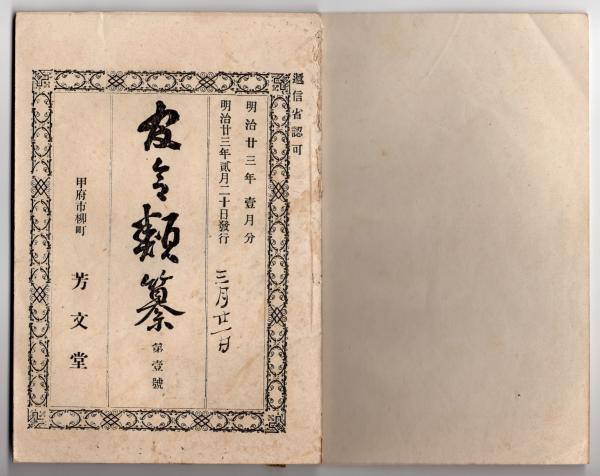 逓信省認可
明治廿三年壹月分
明治廿三年貳月二十日發行
三月廿一日
官令類纂
第壹號
甲府市柳町
芳文堂